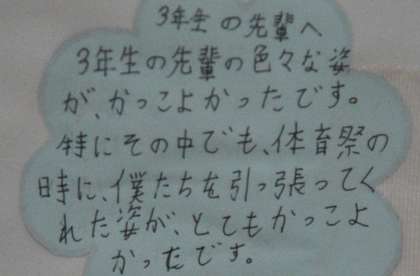 3年生の先輩へ
3年生の先輩の色々な姿
が、かっこよかったです。
特にその中でも、体育祭の
時に、僕たちを引っ張ってく
れた姿が、とてもかっこよ
かったです。